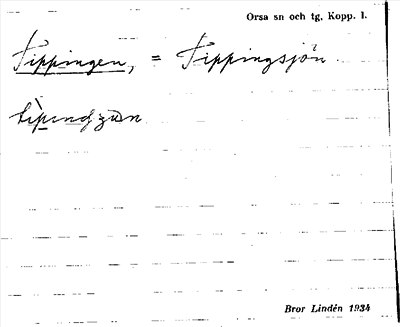 Orsa sn och tg, Kopp. l.
Tippingen, = Tippingsjön
Bror Lindén 1934